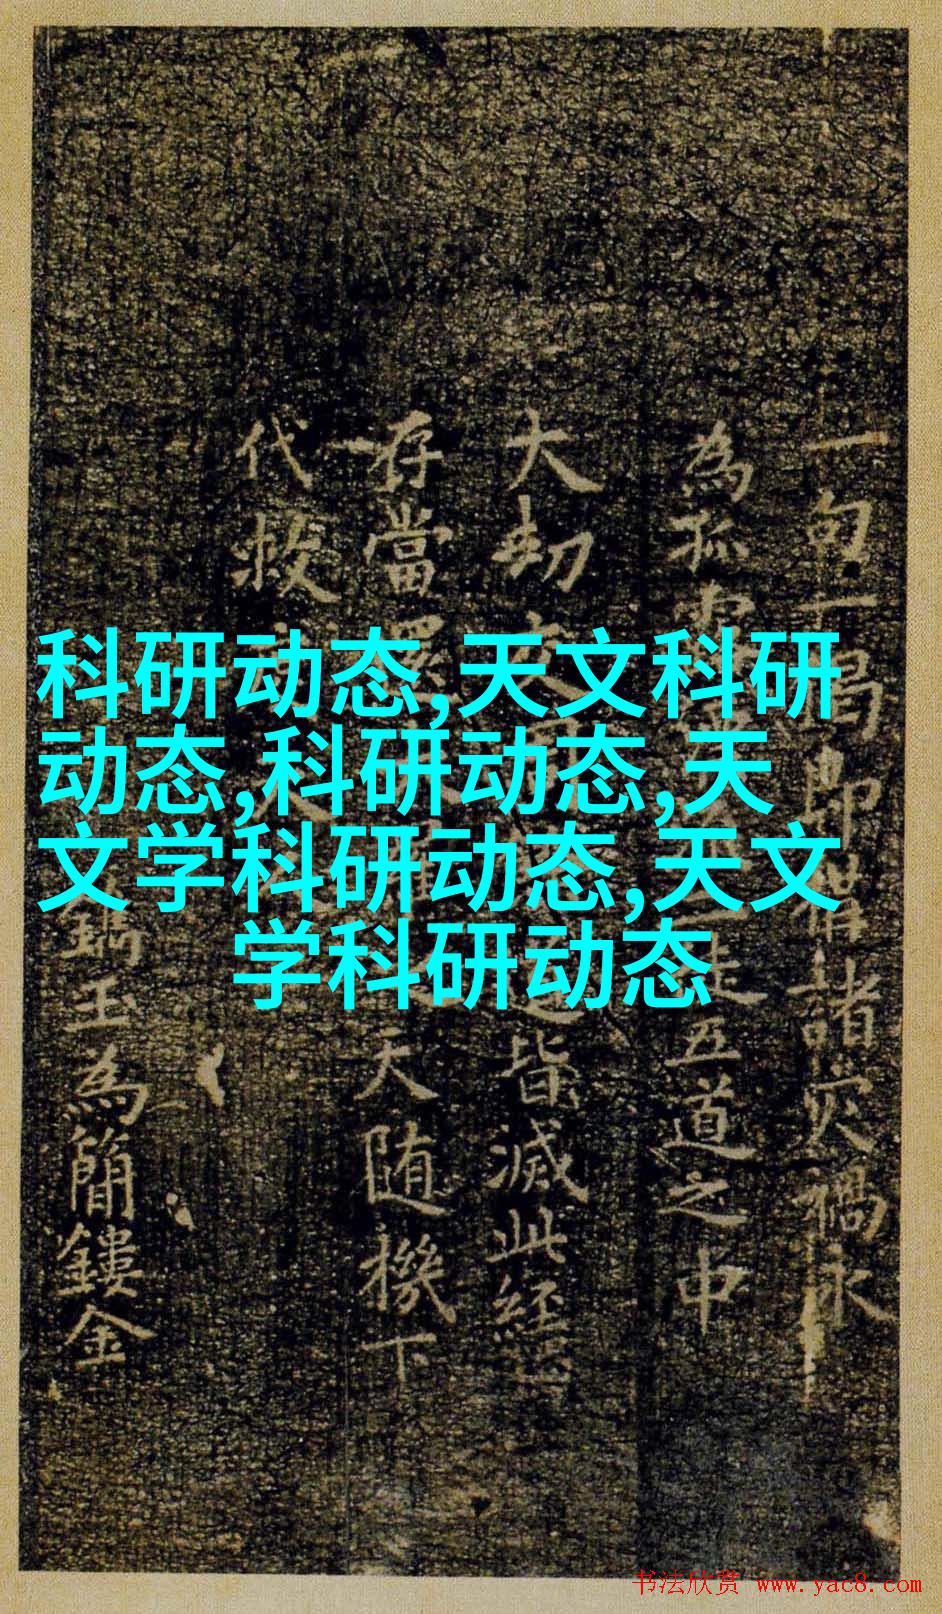 科研动态,天文科研
动态,科研动态,天
文学科研动态,天文
学科研动态
一句一偈即諸灾禍永
為孤五道之中
大劫交皆滅此經
存當天随機下
代救
玉為簡鏤金
书法欣赏 www.yac8.com